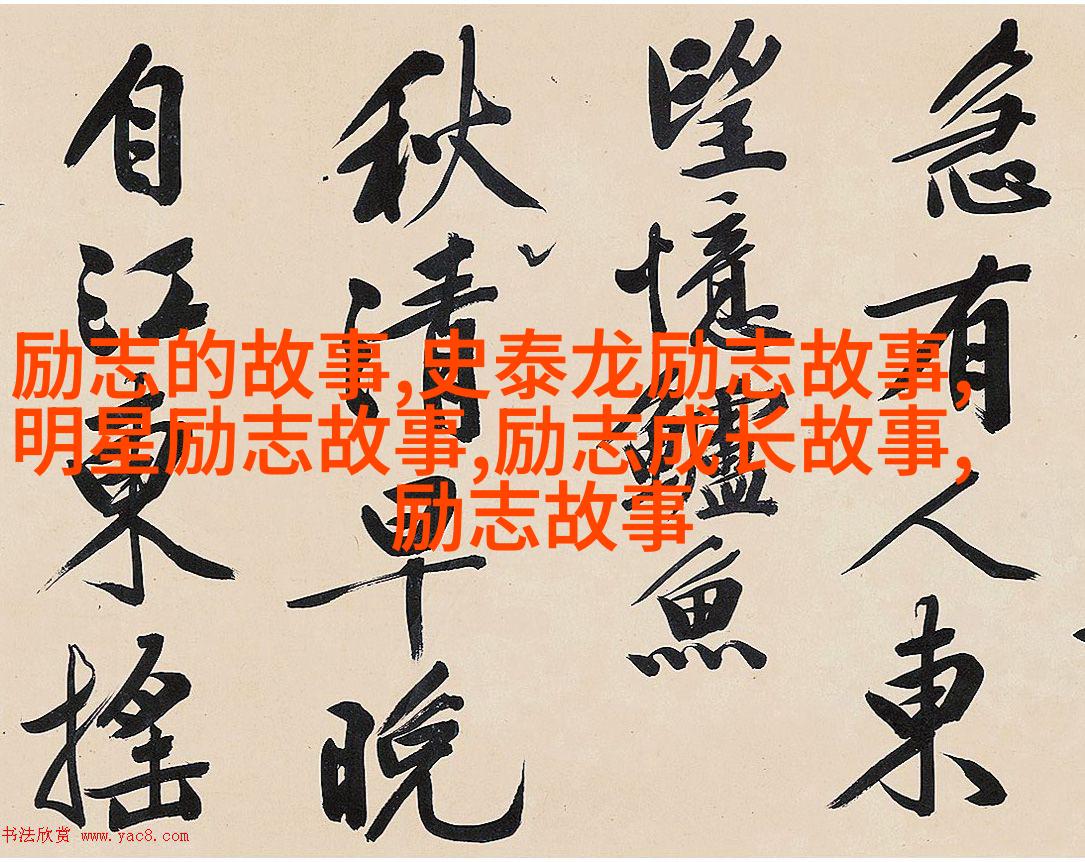 急有人東
望憶鱸魚
秋清早晚
自江東搖
励志的故事,史泰龙励志故事,
明星励志故事,励志成长故事,
励志故事
书法欣赏 www.yac8.com